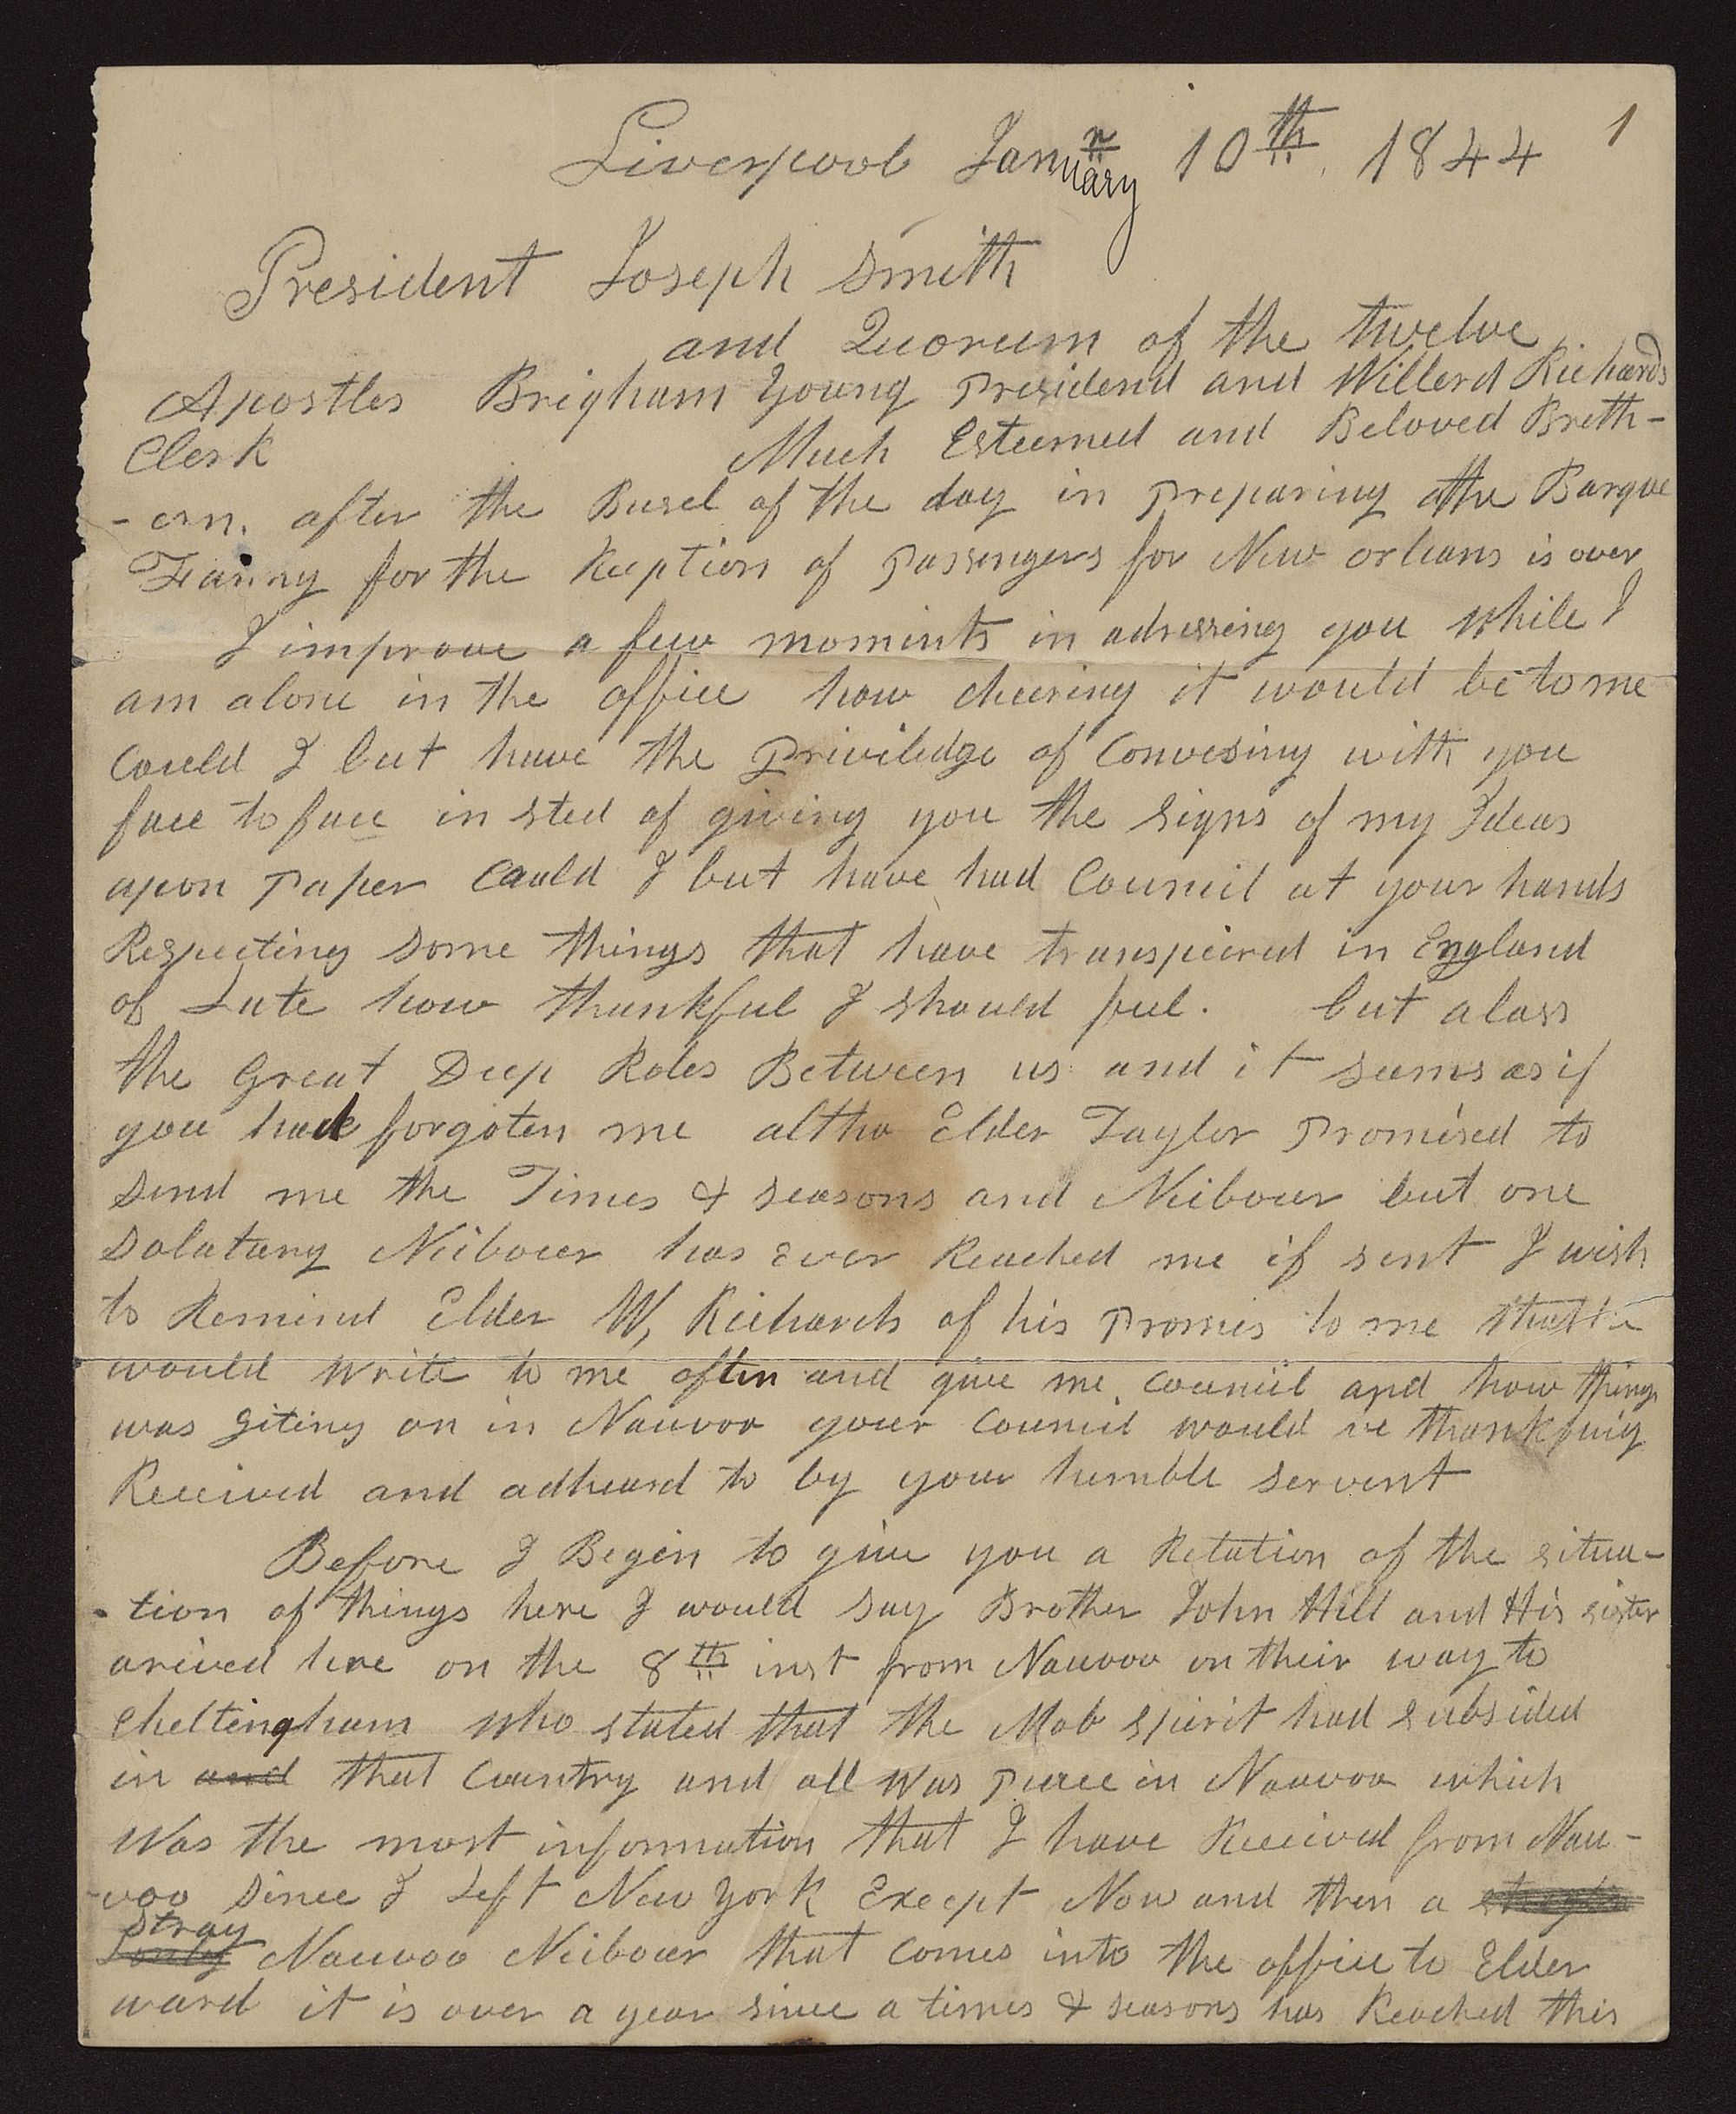 Liverpool January 10th 1844 1
President Joseph Smith
and Quorum of the twelve
Apostles Brigham Young Presidend and Willerd Richards
Clerk Much Esteemed and Beloved Breth-
-ern. after the Busel of the day in preparing the Barque
Fanny for the Reeption of Passengers for New orleans is over
I improve a few momints in adressing you while I
am alone in the office how cheering it would be to me
Could I but have the Priviledge of Convesing with you
face to face in sted of giving you the signs of my Ideas
upon Paper Could I but have had Council at your hands
Respecting some things that have transpeired in England
of Late how thankful I should feel. but alass
the Great Deep Roles Between us and it seems as if
you had forgoten me altho Elder Taylor Promised to
send me the Times & seasons and Neibour but one
Solatary Neibour has ever Reached me if sent I wish
to Remind Elder W, Richards of his Promis to me that he
would write to me often and give me council and how things
was giting on in Nauvoo your Council would be thankfuly
Received and adheard to by your humble servent
Before I Begin to give you a Relation of the situa-
-tion of things here I would say Brother John Hill and His sister
arived here on the 8th inst from Nauvoo on their way to
Cheltingham who stated that the Mob spirit had subsided
in and that Country and all was Peace in Nauvoo which
Was the most information that I have Received from Nau-
-voo since I Left New York Except Now and then a
Stray
Nauvoo Neibour that comes into the office to Elder
ward it is over a year since a times & seasons has Reached this